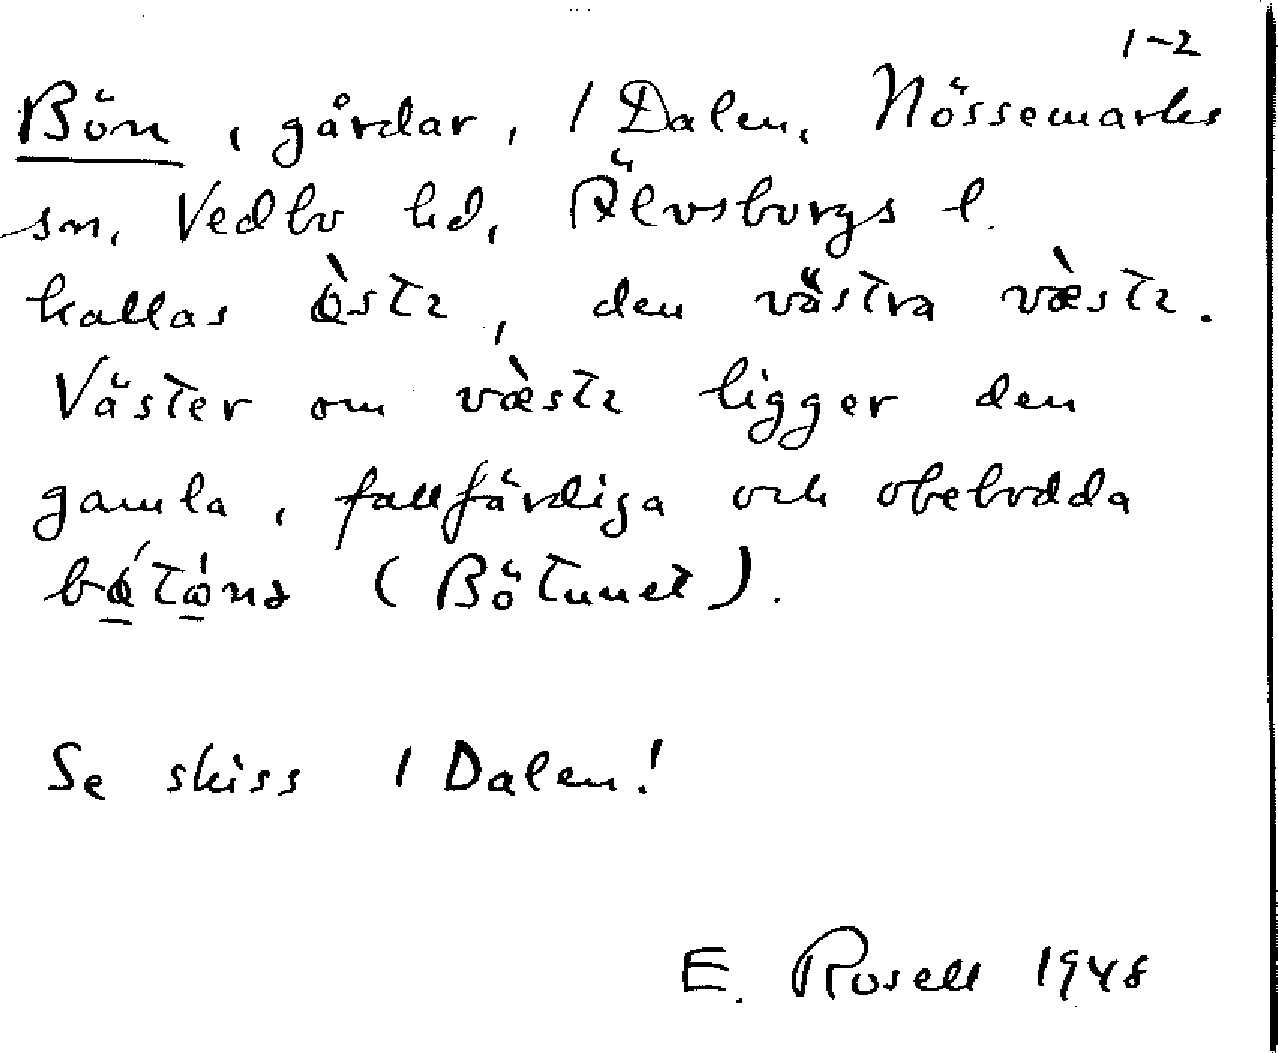 1-2
Bön, gårdar, 1 Dalen, Nössemarks
sn, Vedbo hd, Älvsborgs l.
kallas ö̀stɩ, den västra væ̀stɩ.
Väster om væ̀stɩ ligger den
gamla, fallfärdiga och obebodda
(Bötunet).
Se skiss 1 Dalen!
E. Rosell 1948